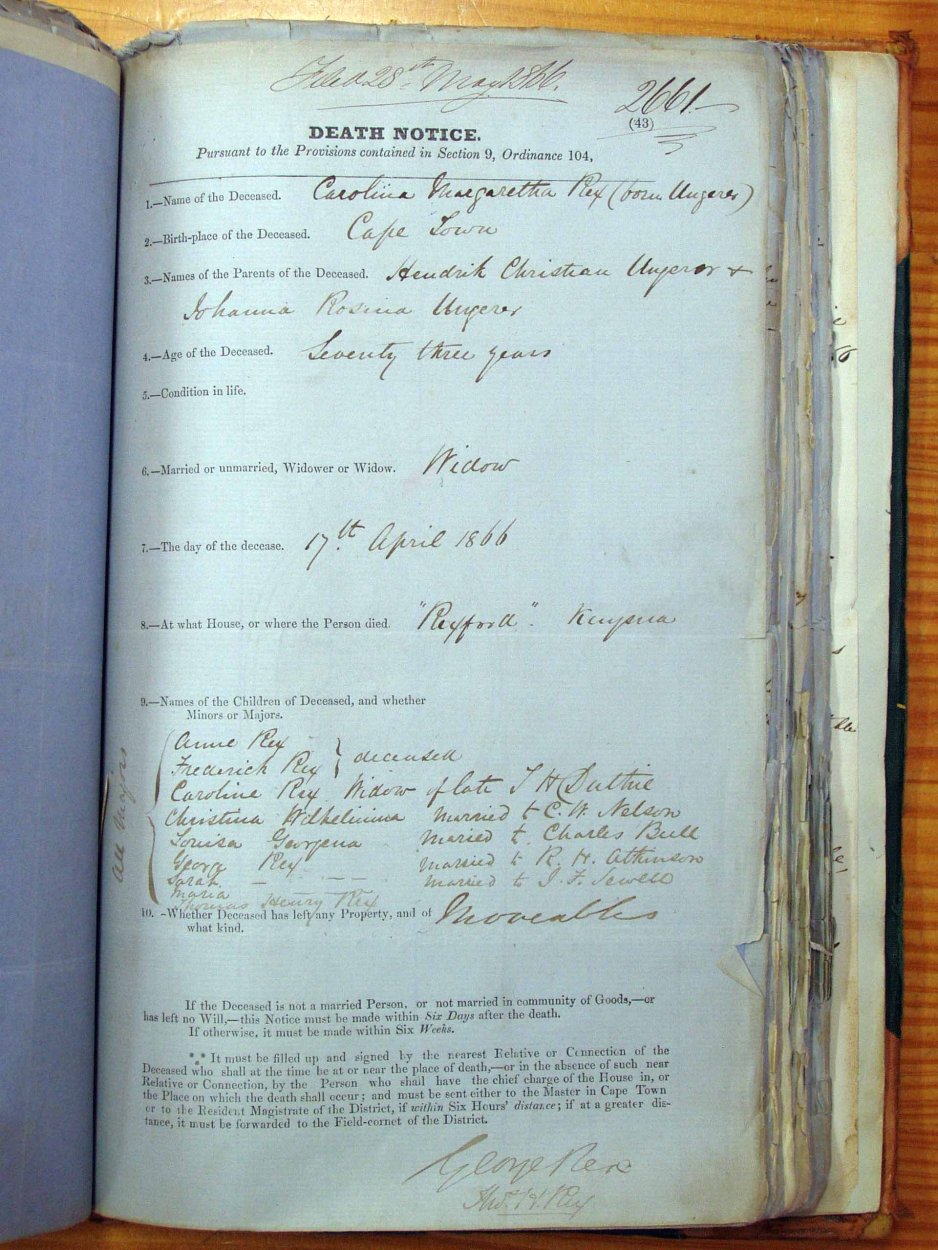 Filed 28th May 1866.
2661.
(43)
DEATH NOTICE.
Pursuant to the Provisions contained in Section 9, Ordinance 104,
1.—Name of the Deceased. Carolina Margaretha Rex (born Ungerer)
2.—Birth-place of the Deceased. Cape Town
3.—Names of the Parents of the Deceased. Hendrik Christian Ungerer &
Johanna Rosina Ungerer
4.—Age of the Deceased. Seventy three years
5.—Condition in life.
6.—Married or unmarried, Widower or Widow. Widow
7.—The day of the decease. 17th April 1866
8.—At what House, or where the Person died. "Rexford". Knysna
9.—Names of the Children of Deceased, and whether
Minors or Majors.
All Majors
Anne Rex
Frederich Rex } deceased
Caroline Rex Widow of late T H Duthie
Christina Wilhelmina Married to C. W. Nelson
Louisa Georgena Maried to Charles Bull
Georg Rex
Married to R. H. Atkinson
Sarah — — —
Married to J. F. Sewell
Maria
Thomas Henry Rex
10. -Whether Deceased has left any Property, and of Moveables
what kind.
If the Deceased is not a married Person, or not married in community of Goods,—or
has left no Will,—this Notice must be made within Six Days after the death.
If otherwise, it must be made within Six Weeks.
*** It must be filled up and signed by the nearest Relative or Connection of the
Deceased who shall at the time be at or near the place of death,—or in the absence of such near
Relative or Connection, by the Person who shall have the chief charge of the House in, or
the Place on which the death shall occur; and must be sent either to the Master in Cape Town
or to the Resident Magistrate of the District, if within Six Hours' distance; if at a greater dis-
tance, it must be forwarded to the Field-cornet of the District.
George Rex
Thos. H. Rex